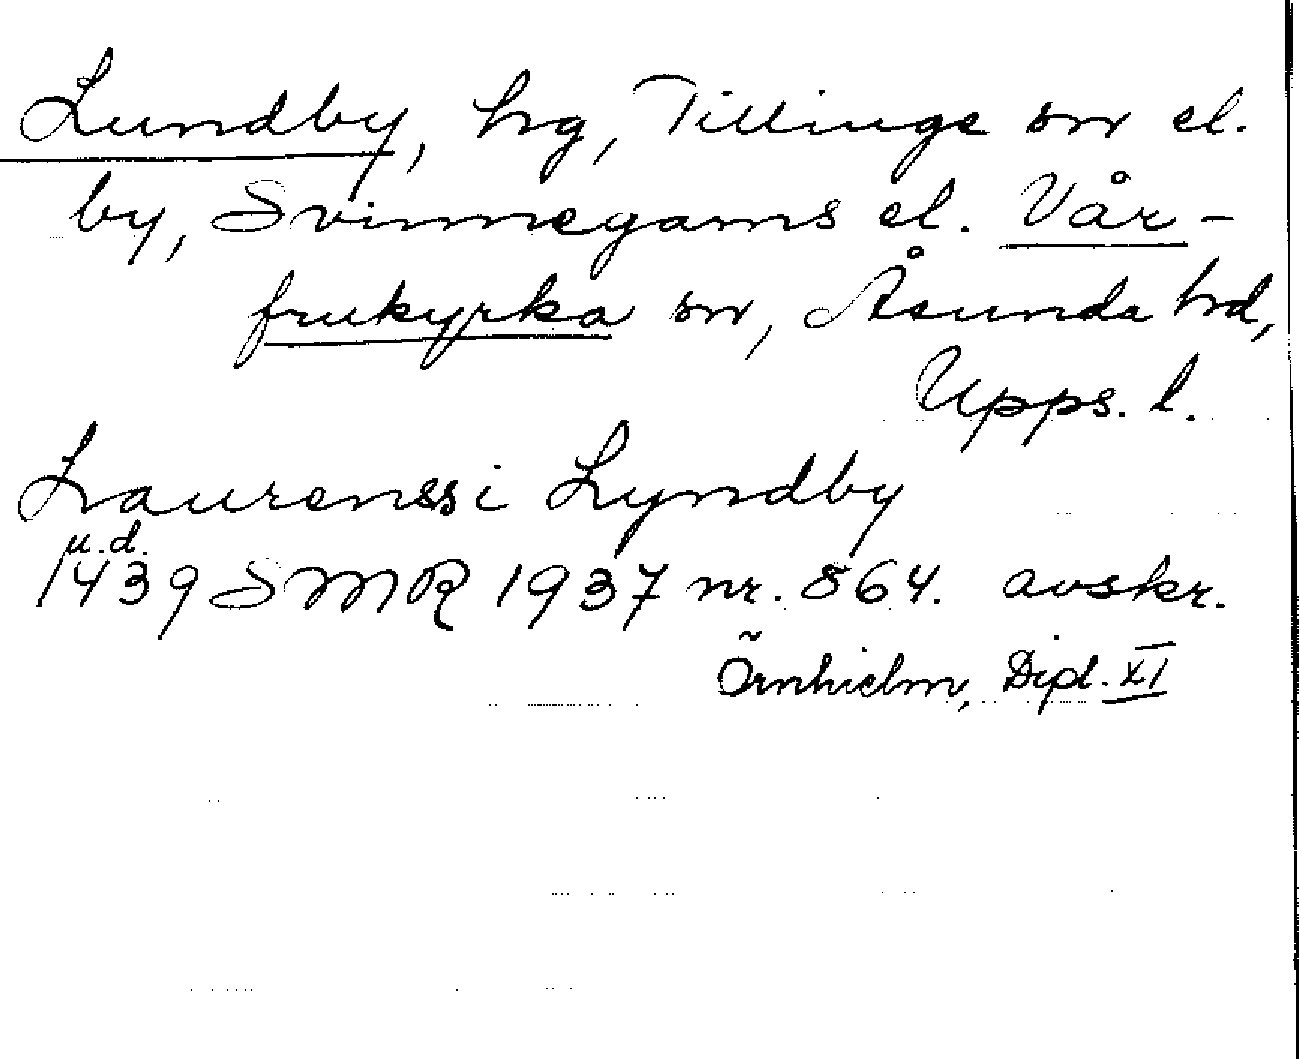 Lundby, hg, Tillinge sn el.
by, Svinnegarns el. Vår-
frukyrka sn, Åsunda hd,
Upps. l.
Laurenssi Lyndby
u.d.
1439 SMR 1937 nr. 864. avskr.
Örnhielm, Dipl. XI